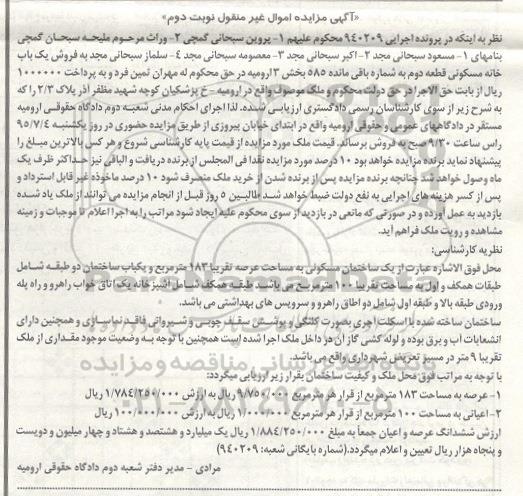 «آگهی مزایده اموال غیر منقول نوبت دوم»
نظر به اینکه در پرونده اجرایی ۹۴۰۲۰۹ محکوم علیهم ۱- پروین سبحانی گمچی ۲- وراث مرحوم ملیحه سبحان گمچی
بنامهای ۱- مسعود سبحانی مجد ۲- اکبر سبحانی مجد ۳- معصومه سبحانی مجد ۴- سلماز سبحانی مجد به فروش یک باب
خانه مسکونی قطعه دوم به شماره باقی مانده ۵۸۵ بخش ۳ ارومیه در حق محکوم له مهران ثمین فرد و به پرداخت ۱۰۰۰۰۰۰
ریال از بابت حق الاجرا در حق دولت محکوم و ملک موصوف واقع در ارومیه - خ پزشکیان کوچه شهید مظفر آذر پلاک ۲/۳ را که
به شرح زیر از سوی کارشناسان رسمی دادگستری ارزیابی شده. لذا اجرای احکام مدنی شعبه دوم دادگاه حقوقی ارومیه
مستقر در دادگاههای عمومی و حقوقی ارومیه واقع در ابتدای خیابان پیروزی از طریق مزایده حضوری در روز یکشنبه ۹۵/۷/۴
راس ساعت ۹/۳۰ صبح به فروش برساند. قیمت ملک مورد مزایده از قیمت پایه کارشناسی شروع و هر کس بالاترین مبلغ را
پیشنهاد نماید برنده مزایده خواهد بود ۱۰ درصد مورد مزایده نقدا فی المجلس از برنده دریافت و الباقی نیز حداکثر ظرف یک
ماه وصول خواهد شد چنانچه برنده مزایده پس از برنده شدن از خرید ملک منصرف شود ۱۰ درصد ماخوذه غیر قابل استرداد و
پس از کسر هزینه های اجرایی به نفع دولت ضبط خواهد شد طالبین ۵ روز قبل از انجام مزایده می توانند از ملک یاد شده
بازدید به عمل آورده و در صورتی که مانعی در بازدید از سوی محکوم علیه ایجاد شود مراتب را به اجرا اعلام تا موجبات و زمینه
مشاهده و رویت ملک فراهم آید.
نظریه کارشناسی:
محل فوق الاشاره عبارت از یک ساختمان مسکونی به مساحت عرصه تقریبا ۱۸۳ مترمربع و یکباب ساختمان دو طبقه شامل
طبقات همکف و اول به مساحت تقریبا ۱۰۰ مترمربع می باشد طبقه همکف شامل آشپزخانه یک اتاق خواب راهرو و راه پله
ورودی طبقه بالا و طبقه اول شامل دو اطاق راهرو و سرویس های بهداشتی می باشد.
ساختمان ساخته شده با اسکلت اجری بصورت کلنگی و پوشش سقف چوبی و شیروانی فاقد نماسازی و همچنین دارای
انشعابات آب و برق بوده و لوله کشی گاز آن در داخل ملک اجرا شده است همچنین با توجه به وضعیت موجود مقداری از ملک
تقریبا ۹ متر در مسیر تعریض شهرداری واقع می باشد.
با توجه به مراتب فوق محل ملک و کیفیت ساختمان بقرار زیر ارزیابی میگردد:
۱- عرصه به مساحت ۱۸۳ مترمربع از قرار هر مترمربع ۹/۷۵۰/۰۰۰ ریال به ارزش ۱/۷۸۴/۲۵۰/۰۰۰ ریال
۲- اعیانی به مساحت ۱۰۰ مترمربع از قرار هر مترمربع ۱/۰۰۰/۰۰۰ ریال به ارزش ۱۰۰/۰۰۰/۰۰۰ ریال
ارزش ششدانگ عرصه و اعیان جمعا به مبلغ ۱/۸۸۴/۲۵۰/۰۰۰ ریال یک میلیارد و هشتصد و هشتاد و چهار میلیون و دویست
و پنجاه هزار ریال تعیین و اعلام میگردد.(شماره بایگانی شعبه: ۹۴۰۲۰۹)
مرادی - مدیر دفتر شعبه دوم دادگاه حقوقی ارومیه